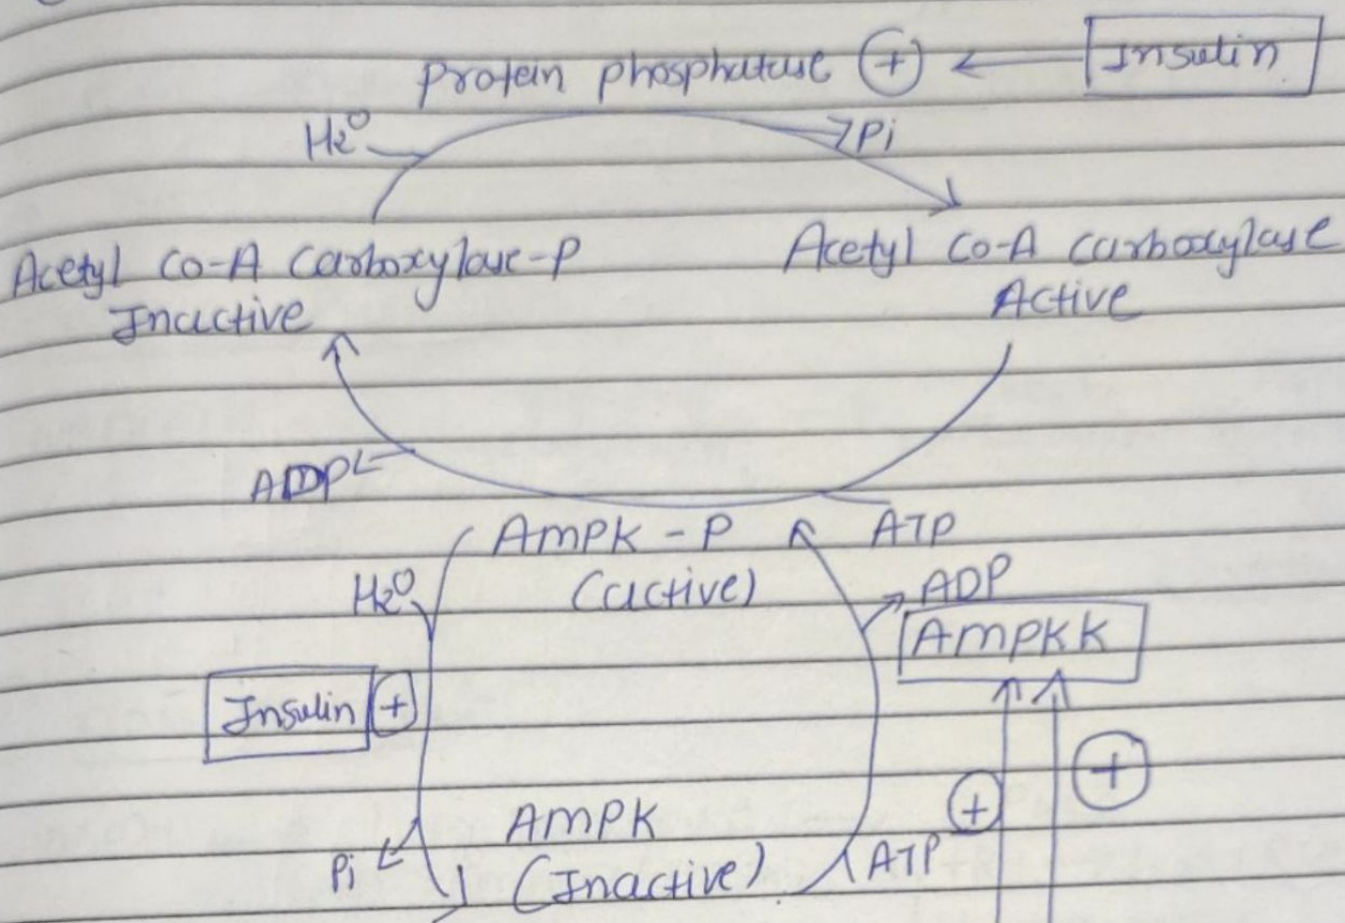 Protein phosphatase (+) ← Insulin
H2O
Pi
Acetyl Co-A Carboxylase-P
Inactive
Acetyl Co-A Carboxylase
Active
ADP
ATP
AMPK - P
(active)
H2O
ADP
AMPKK
Insulin +
+
+
AMPK
(Inactive)
Pi
ATP